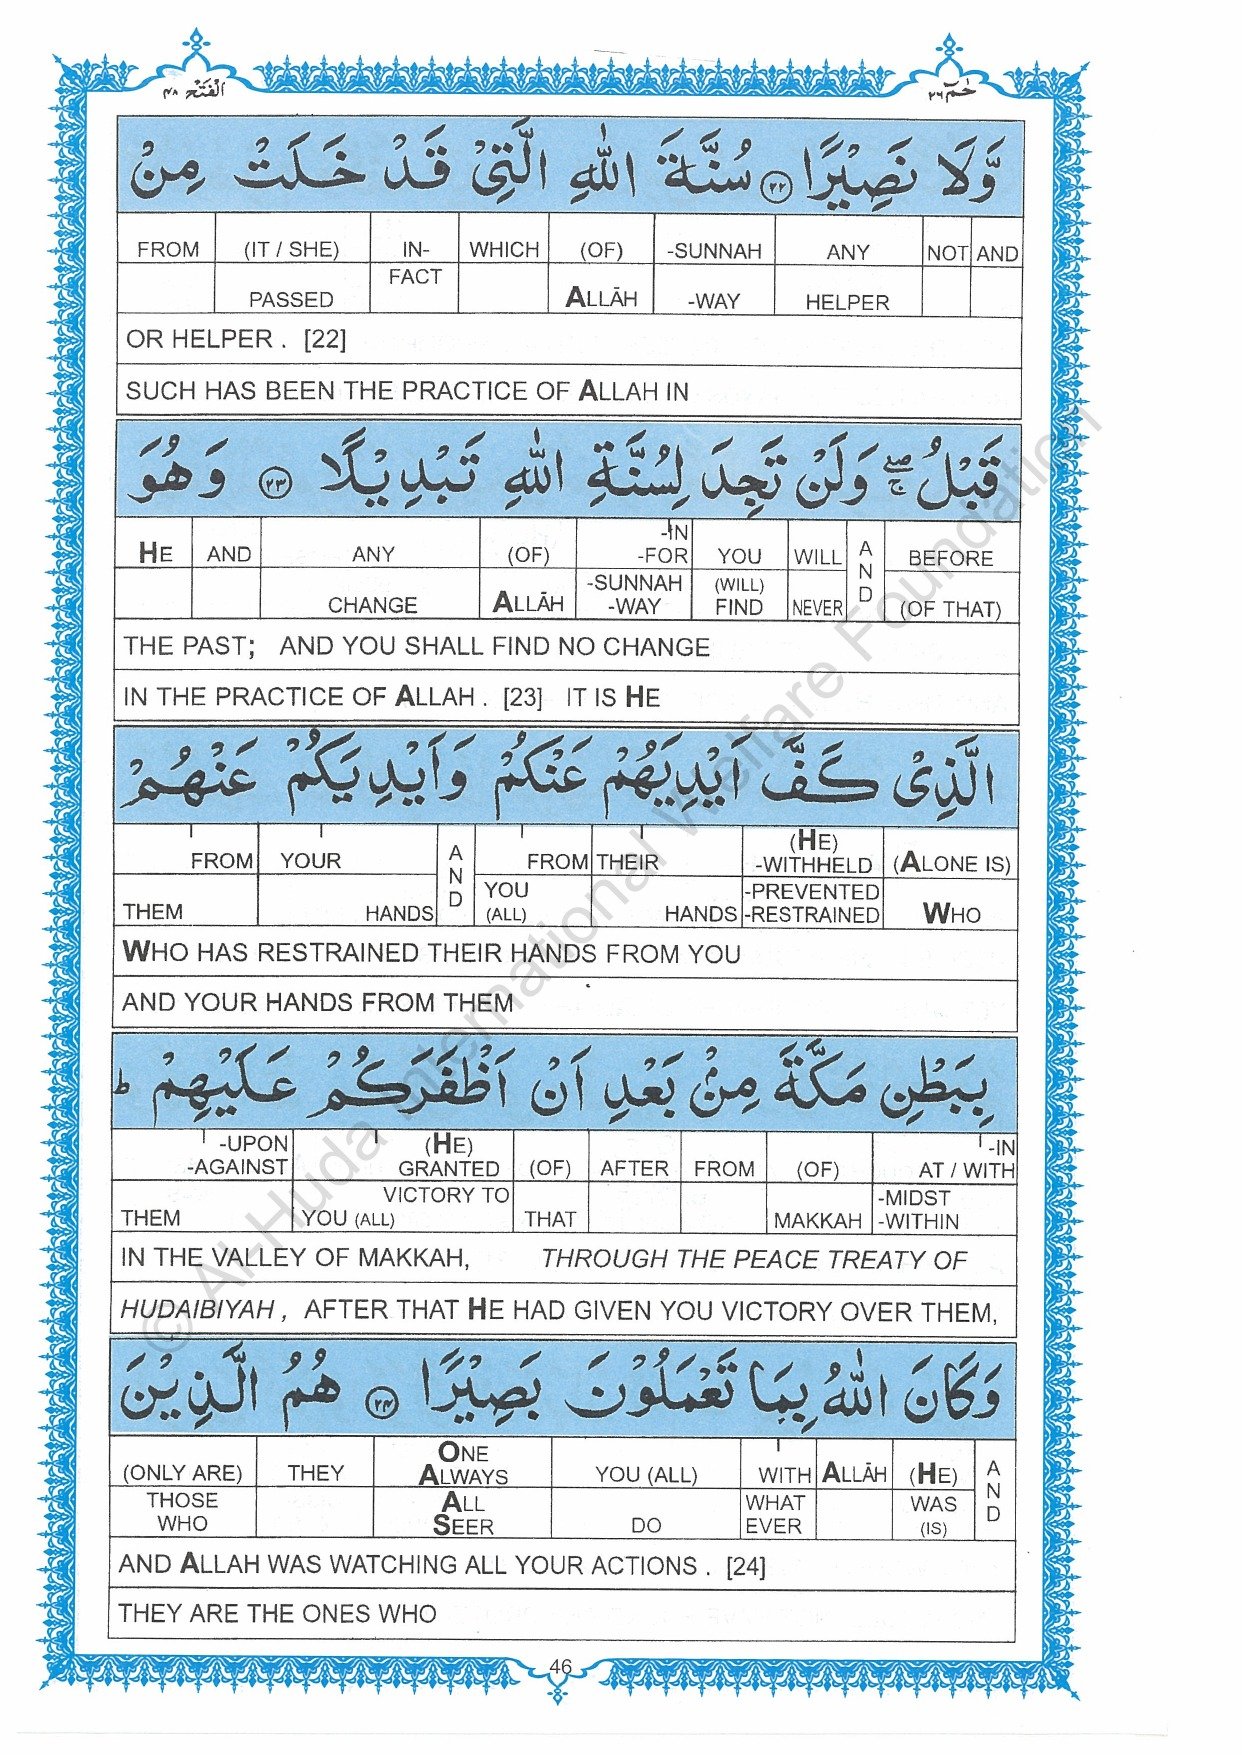 الْفَتْح ٤٨
حٰمٓ ٢٦
وَّلَا نَصِيْرًا ﴿٢٢﴾ سُنَّةَ اللّٰهِ الَّتِيْ قَدْ خَلَتْ مِنْ
FROM (IT / SHE) IN- WHICH (OF) -SUNNAH ANY NOT AND
PASSED FACT ALLĀH -WAY HELPER
OR HELPER . [22]
SUCH HAS BEEN THE PRACTICE OF ALLAH IN
قَبْلُ ۖۚ وَلَنْ تَجِدَ لِسُنَّةِ اللّٰهِ تَبْدِيْلًا ﴿٢٣﴾ وَهُوَ
-IN
HE AND ANY (OF) -FOR YOU WILL AND BEFORE
CHANGE ALLĀH -SUNNAH (WILL)
-WAY FIND NEVER (OF THAT)
THE PAST; AND YOU SHALL FIND NO CHANGE
IN THE PRACTICE OF ALLAH . [23] IT IS HE
الَّذِيْ كَفَّ اَيْدِيَهُمْ عَنْكُمْ وَاَيْدِيَكُمْ عَنْهُمْ
(HE)
FROM YOUR AND FROM THEIR -WITHHELD (ALONE IS)
YOU -PREVENTED
THEM HANDS (ALL) HANDS -RESTRAINED WHO
WHO HAS RESTRAINED THEIR HANDS FROM YOU
AND YOUR HANDS FROM THEM
بِبَطْنِ مَكَّةَ مِنْۢ بَعْدِ اَنْ اَظْفَرَكُمْ عَلَيْهِمْ ؕ
-UPON (HE) -IN
-AGAINST GRANTED (OF) AFTER FROM (OF) AT / WITH
VICTORY TO -MIDST
THEM YOU (ALL) THAT MAKKAH -WITHIN
IN THE VALLEY OF MAKKAH, THROUGH THE PEACE TREATY OF
HUDAIBIYAH , AFTER THAT HE HAD GIVEN YOU VICTORY OVER THEM,
وَكَانَ اللّٰهُ بِمَا تَعْمَلُوْنَ بَصِيْرًا ﴿٢٤﴾ هُمُ الَّذِيْنَ
ONE
(ONLY ARE) THEY ALWAYS YOU (ALL) WITH ALLĀH (HE) AND
THOSE ALL WHAT WAS
WHO SEER DO EVER (IS)
AND ALLAH WAS WATCHING ALL YOUR ACTIONS . [24]
THEY ARE THE ONES WHO
46
© Al-Huda International Welfare Foundation